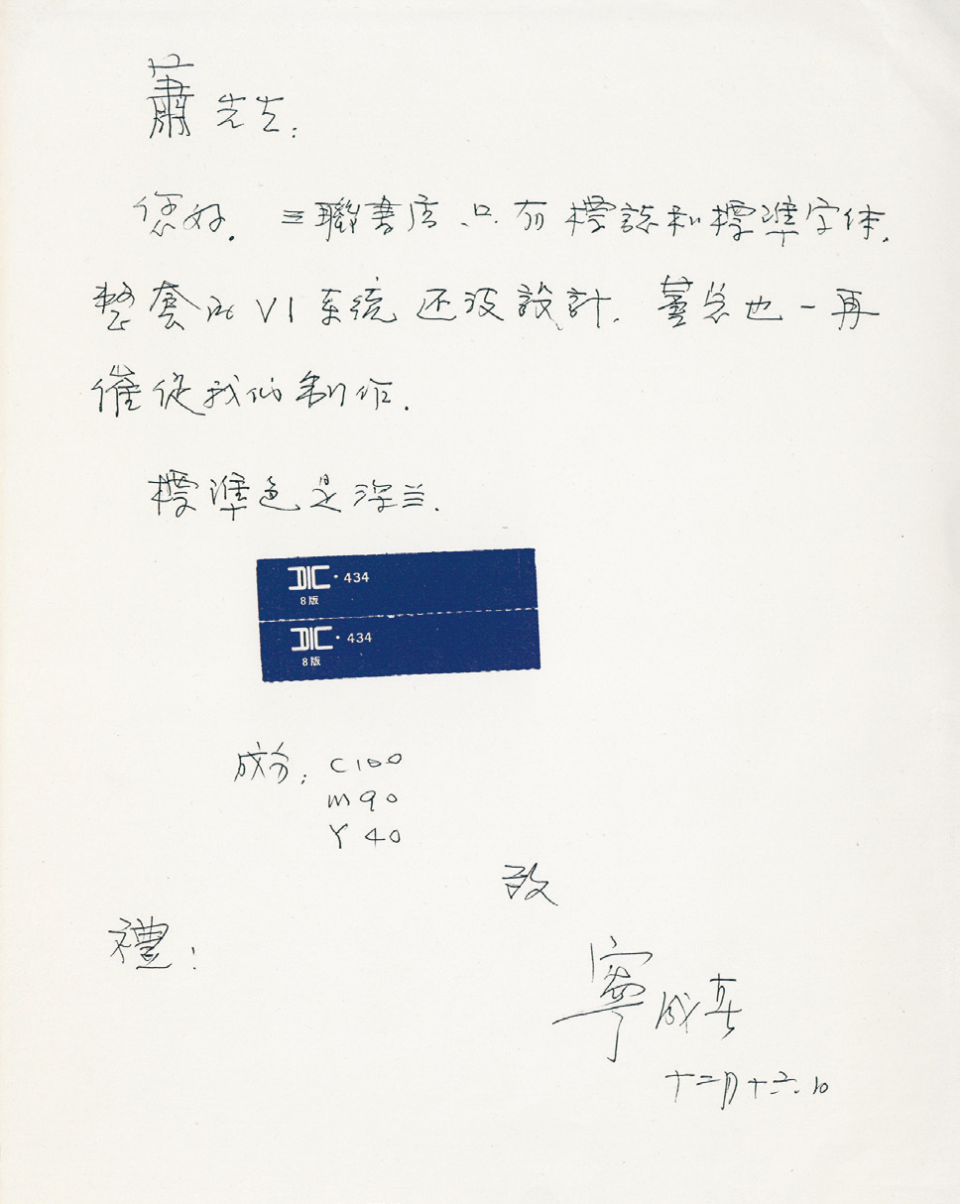 蕭先生:
您好. 三聯書店只有標誌和標準字体.
整套的VI系统还没設計. 董总也一再
催促我们制作.
標準色是深兰.
DIC・434
8版
DIC・434
8版
成分: C100
M90
Y40
致
禮!
寧成春
十二月十六.